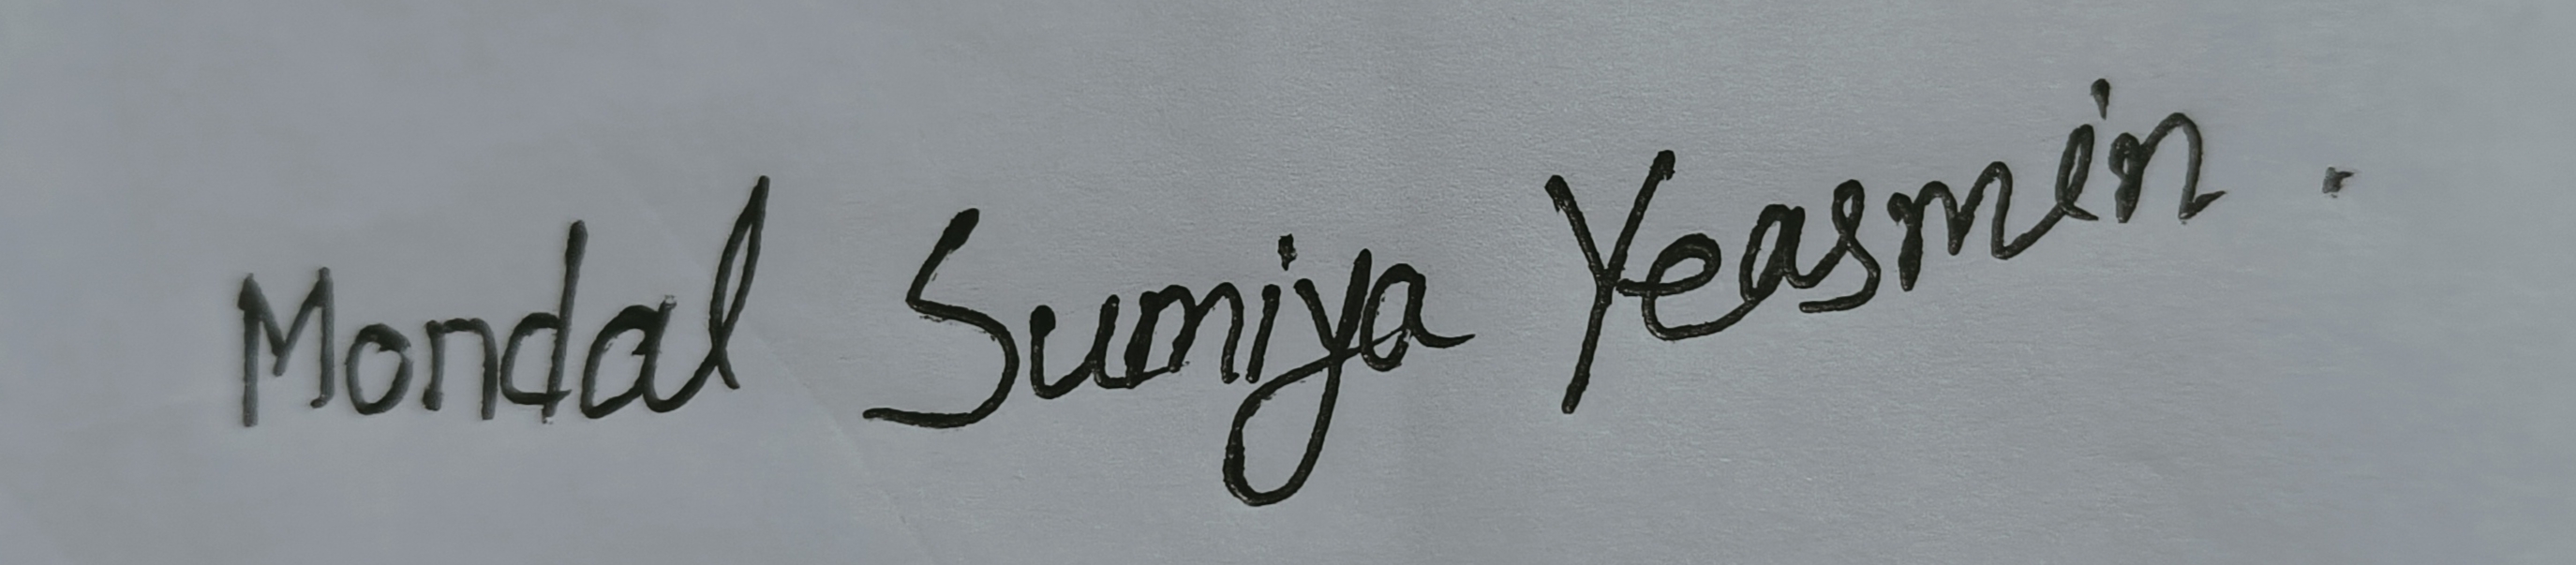 Mondal Sumiya Yeasmin.